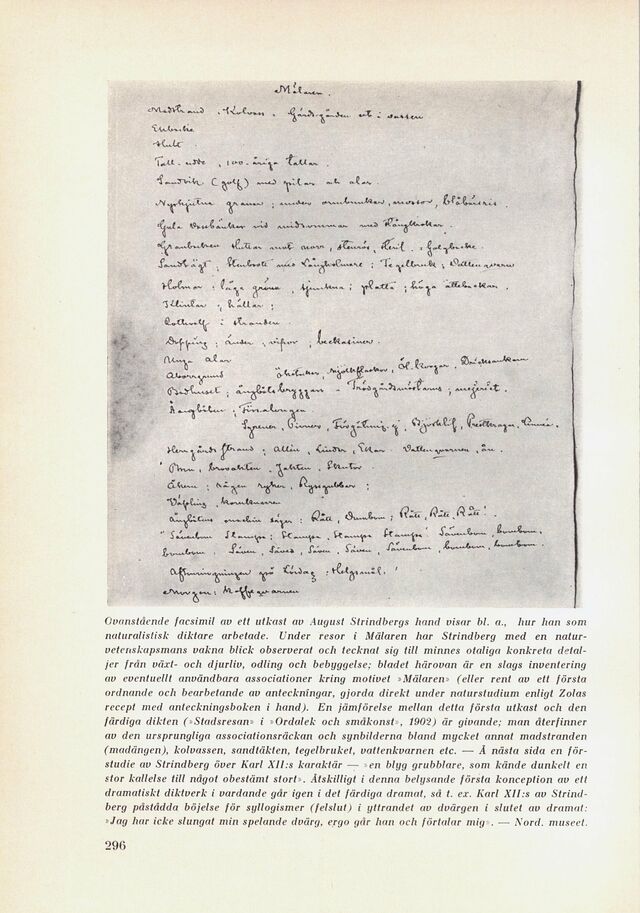 Mälaren.
Madstrand, Kolvass. Gärdsgården ut i vassen
Ekbacke
Hult
Tall-udde, 100-åriga tallar.
Sandvik (golf) med pilar och alar.
granar; under ormbunkar, mossor, blåbärsris.
Gula vid midsommar med
Granbacken
Sandtägt, Stenbrott med ; Tegelbruk; Vattenqvarn
Holmar; låga gröna, ; platta; höga ättebackar.
hällar;
i stranden
Dopping; änder, vipor, beckasiner.
Unga alar
Badhuset; ångbåtsbryggan - ; mejeriet.
Ångbåten;
Syrener, Linnea.
Herrgårds Strand: Alléer, Lindar, Ekar. Vattenqvarnen, ån.
Jakten,
Åkern; rågen ryker,
Ångbåtens maskin säger: Rätt, Dunbom; Rätt, Rätt, Rätt!
Stampa; Stampa, Stampa Stampa
Aftonringningen på Lördag; Helgsmål.
Morgon: Kaffeqvarnen
Ovanstående facsimil av ett utkast av August Strindbergs hand visar bl. a., hur han som
naturalistisk diktare arbetade. Under resor i Mälaren har Strindberg med en natur-
vetenskapsmans vakna blick observerat och tecknat sig till minnes otaliga konkreta detal-
jer från växt- och djurliv, odling och bebyggelse; bladet härovan är en slags inventering
av eventuellt användbara associationer kring motivet »Mälaren» (eller rent av ett första
ordnande och bearbetande av anteckningar, gjorda direkt under naturstudium enligt Zolas
recept med anteckningsboken i hand). En jämförelse mellan detta första utkast och den
färdiga dikten (»Stadsresan» i »Ordalek och småkonst», 1902) är givande; man återfinner
av den ursprungliga associationsräckan och synbilderna bland mycket annat madstranden
(madängen), kolvassen, sandtäkten, tegelbruket, vattenkvarnen etc. — Å nästa sida en för-
studie av Strindberg över Karl XII:s karaktär — »en blyg grubblare, som kände dunkelt en
stor kallelse till något obestämt stort». Åtskilligt i denna belysande första konception av ett
dramatiskt diktverk i vardande går igen i det färdiga dramat, så t. ex. Karl XII:s av Strind-
berg påstådda böjelse för syllogismer (felslut) i yttrandet av dvärgen i slutet av dramat:
»Jag har icke slungat min spelande dvärg, ergo går han och förtalar mig». — Nord. museet.
296